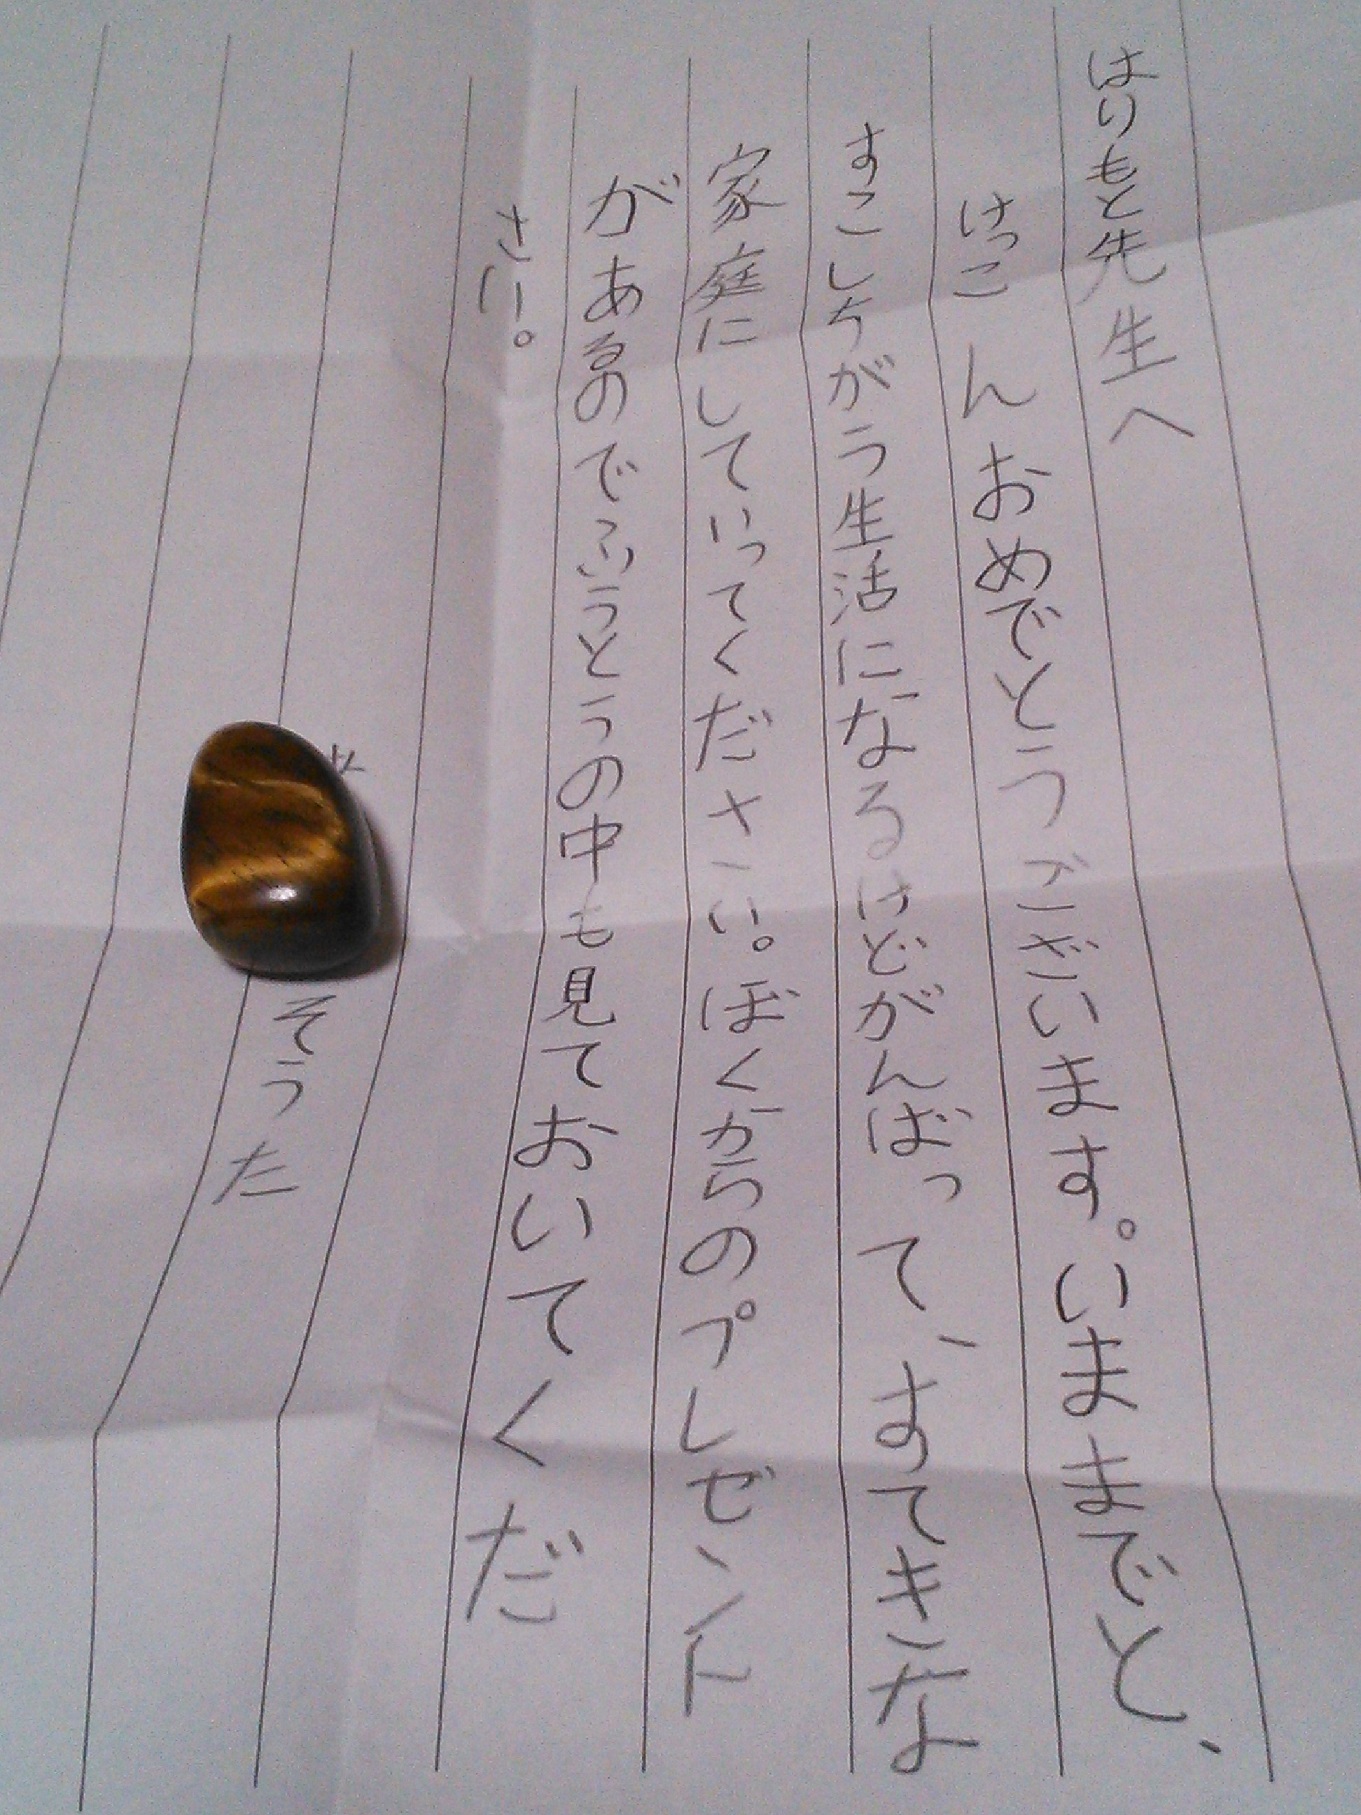 はりもと先生へ
けっこんおめでとうございます。いままでと、
すこしちがう生活になるけどがんばって、すてきな
家庭にしていってください。ぼくからのプレゼント
があるのでふうとうの中も見ておいてくだ
さい。
そうた